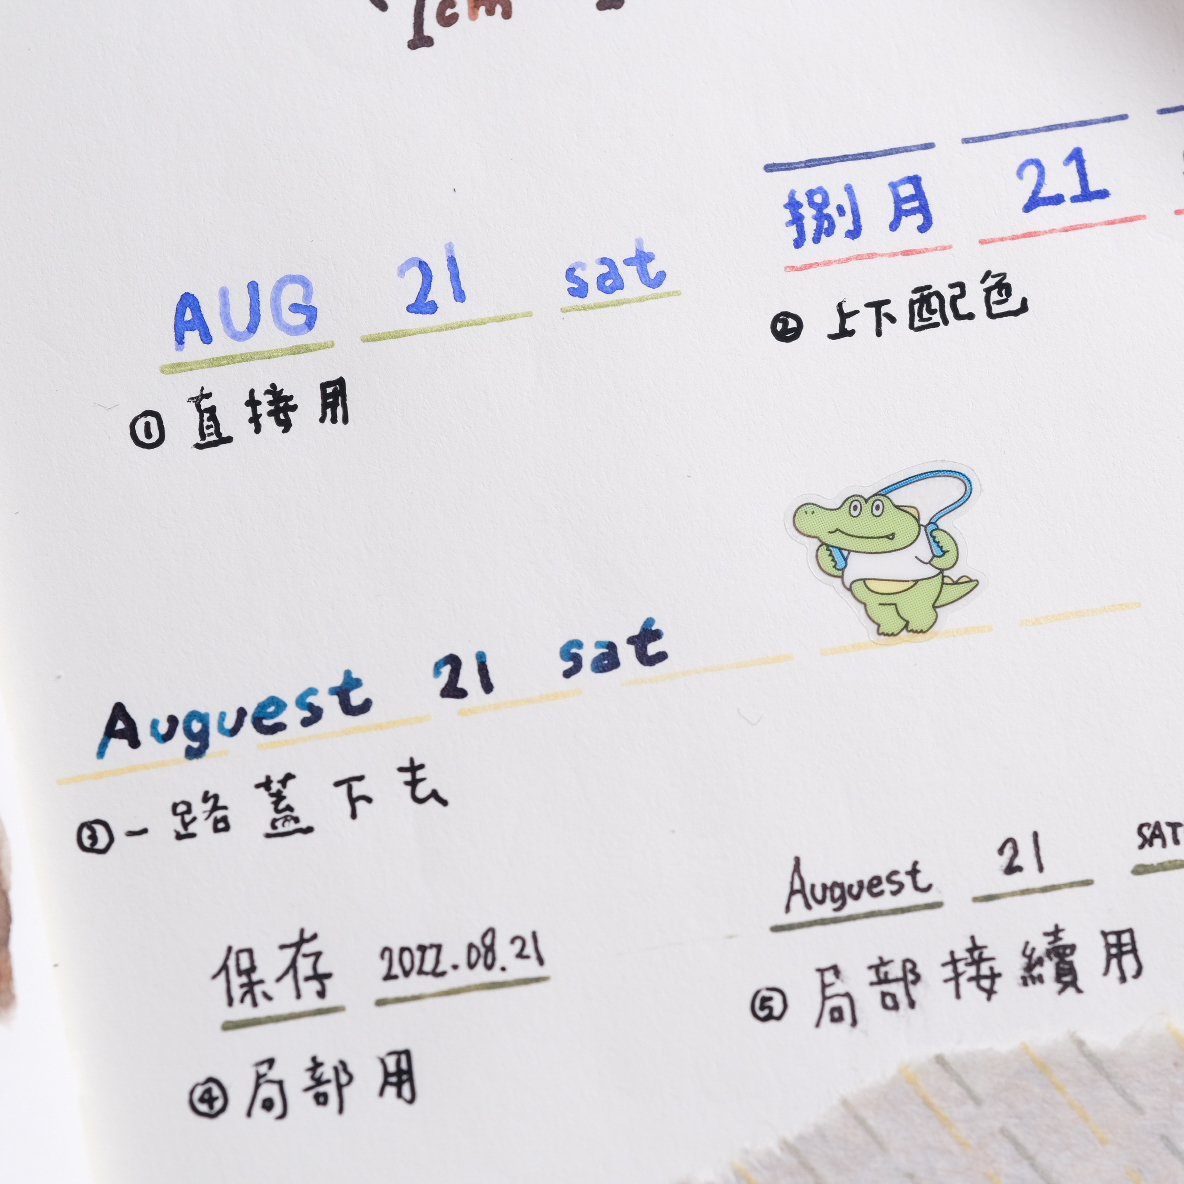 1cm
AUG 21 sat
① 直接用
捌月 21
② 上下配色
Auguest 21 sat
③ 一路蓋下去
保存 2022.08.21
④ 局部用
Auguest 21 SAT
⑤ 局部接續用